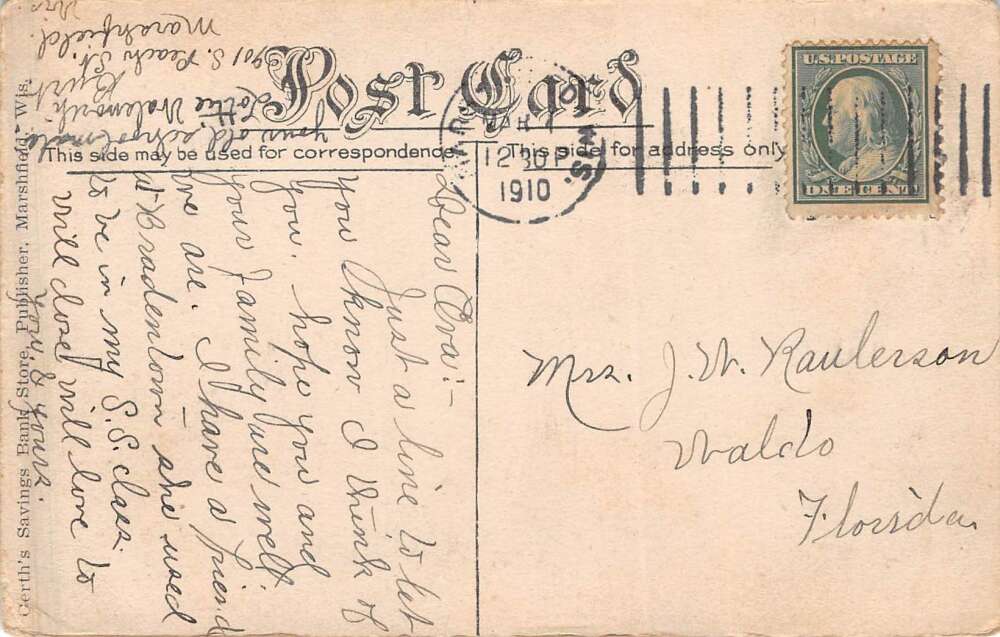 Post Card
This side may be used for correspondence
This side for address only
U.S. POSTAGE
ONE CENT
MAR 1
12 30 P
1910
WIS.
Gerth's Savings Bank Store, Publisher, Marshfield, Wis.
Dear Ova:-
Just a line to let
you know I think of
you, hope you and
your family are well.
we are. I have a friend
at Bradentown - she used
to be in my S.S. class.
Will close will love to
you & yours.
your old school mate
Lottie Walsworth
Burt
901 S. Peach St.
Marshfield.
Wis.
Mrs. J. W. Raulerson
Waldo
Florida